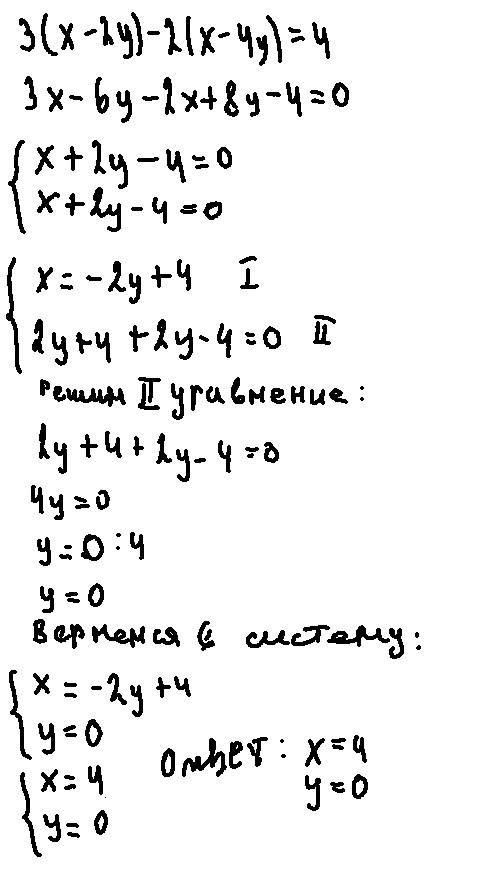 3(x-2y)-2(x-4y)=4
3x-6y-2x+8y-4=0
{ x+2y-4=0
x+2y-4=0
{ x=-2y+4 I
2y+4+2y-4=0 II
Решим II уравнение:
2y+4+2y-4=0
4y=0
y=0:4
y=0
Вернемся в систему:
{ x=-2y+4
y=0
{ x=4
y=0
Ответ: x=4
y=0